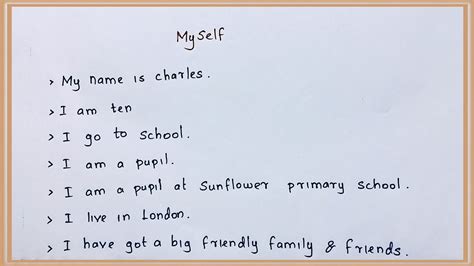 Myself
> My name is charles.
> I am ten
> I go to school.
> I am a pupil.
> I am a pupil at Sunflower primary school.
> I live in London.
> I have got a big friendly family & friends.